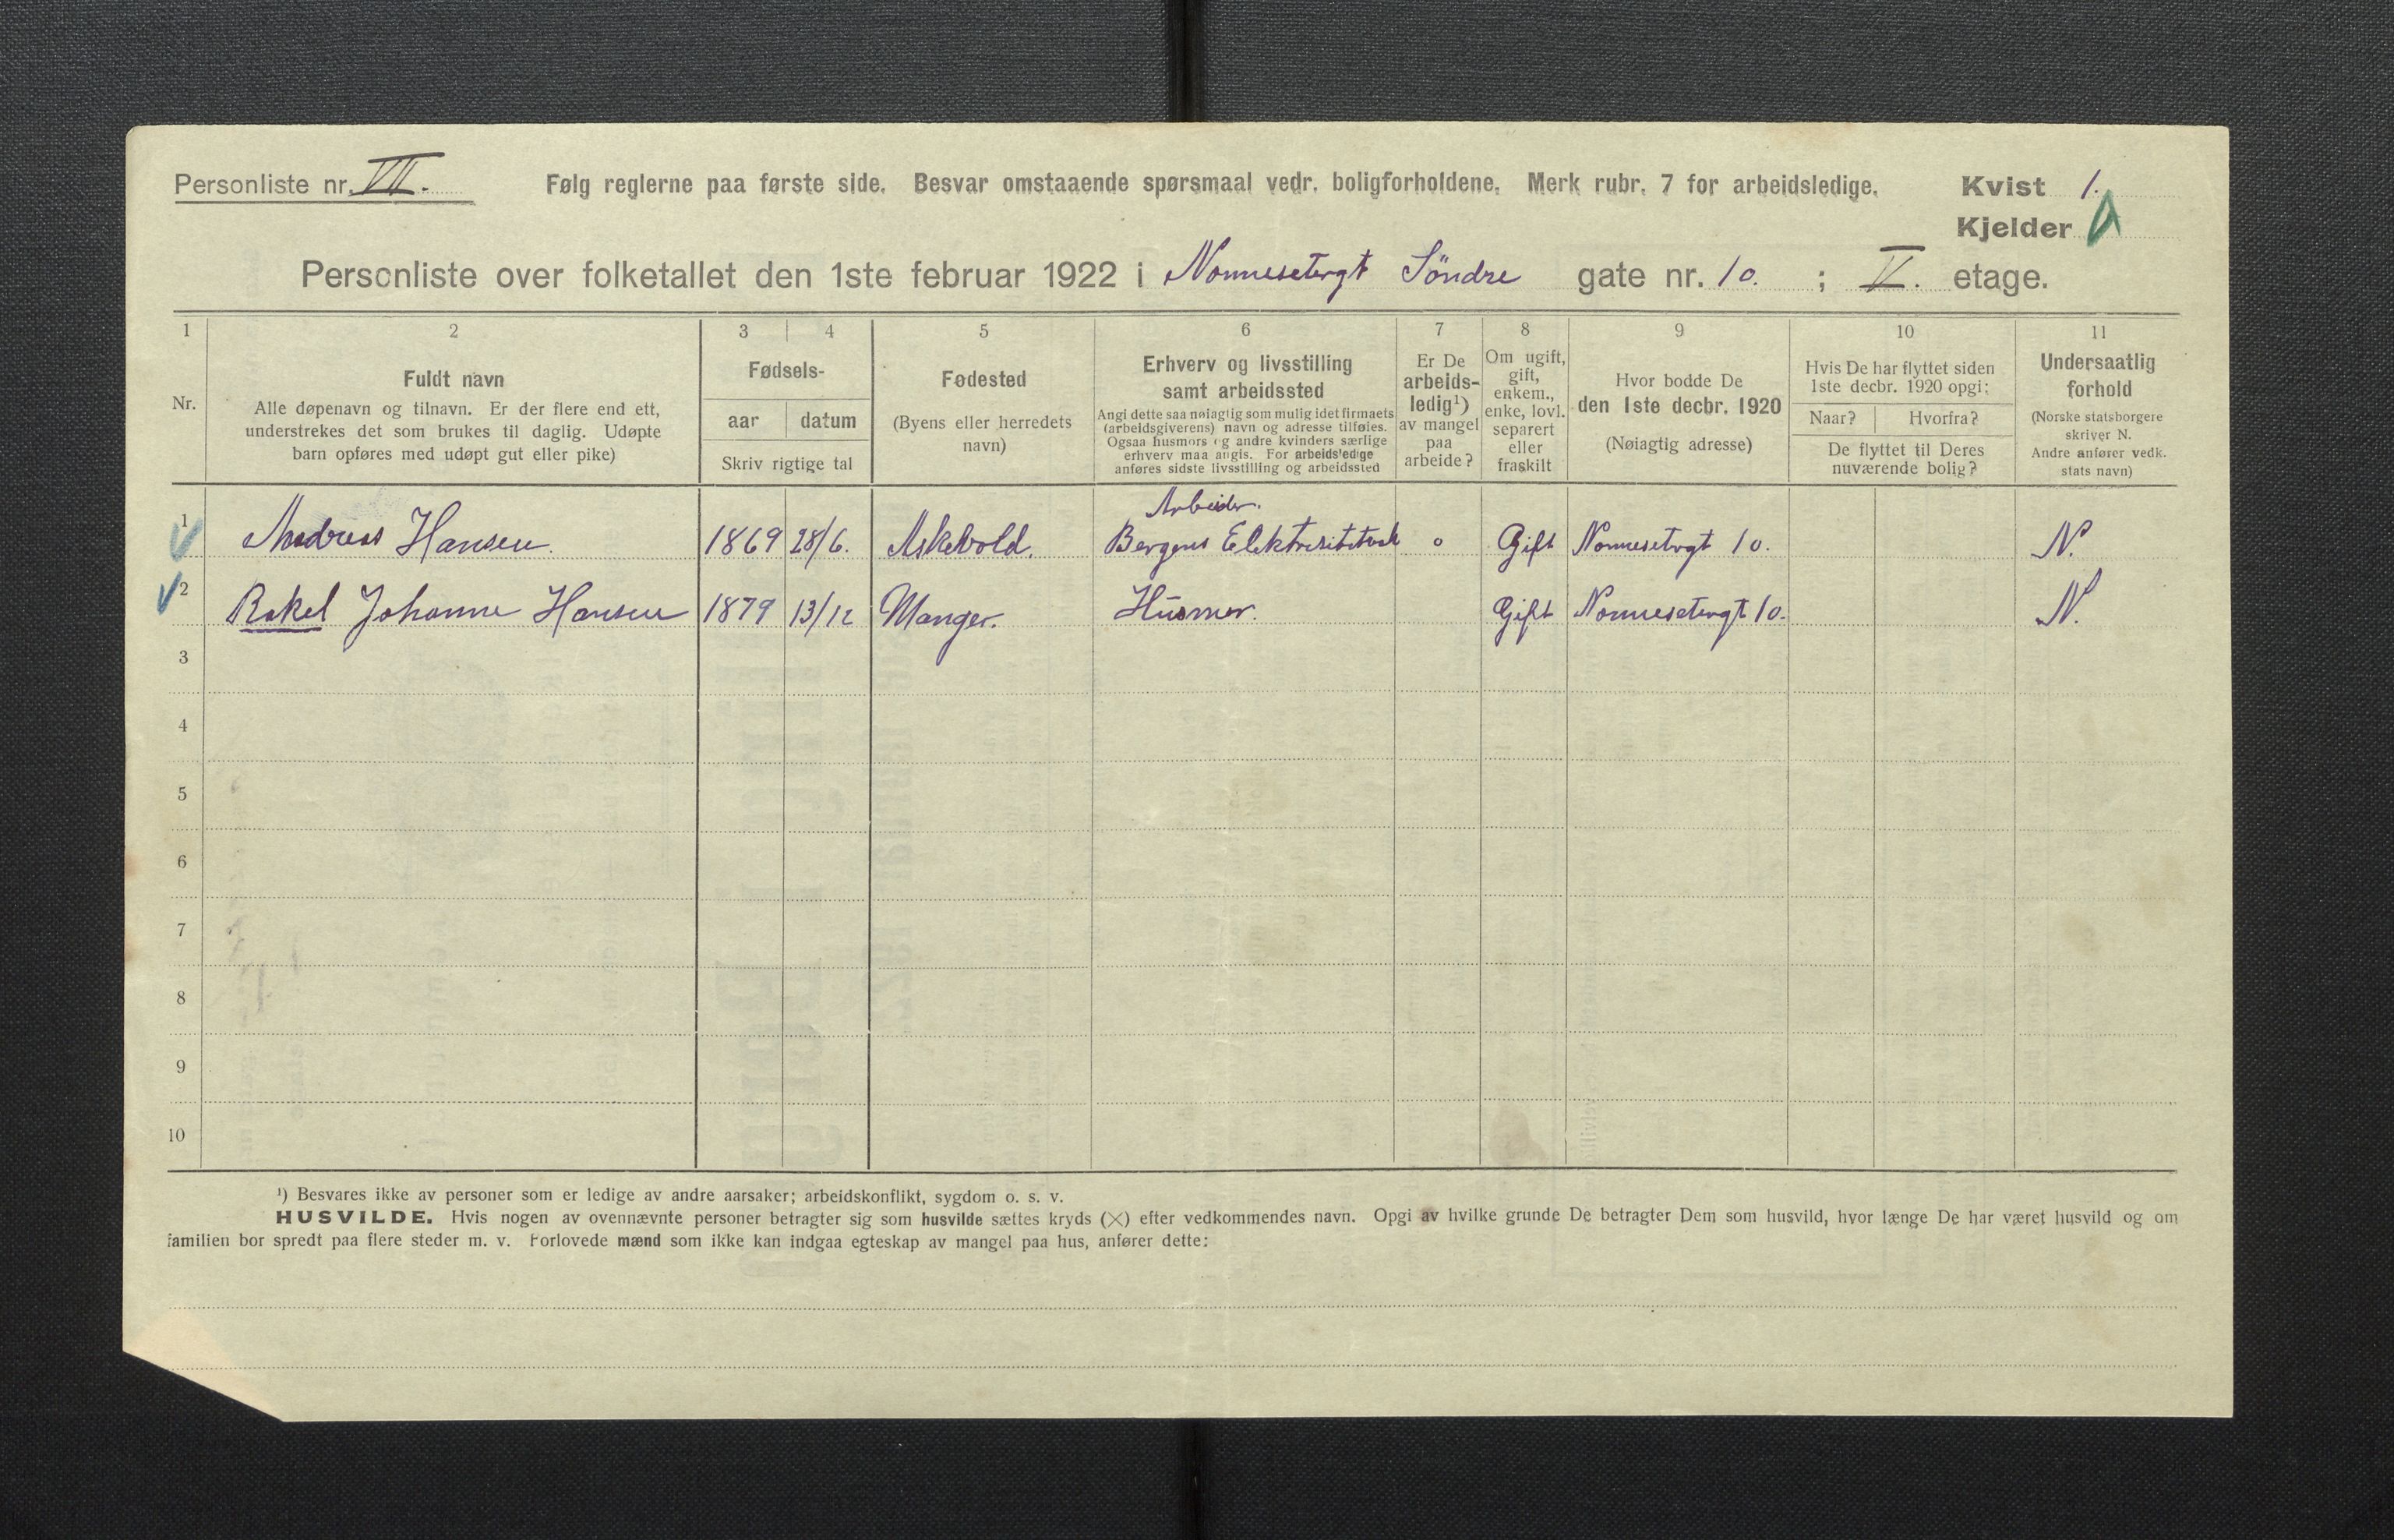 Personliste nr. VII. Følg reglerne paa første side. Besvar omstaaende spørsmaal vedr. boligforholdene. Merk rubr. 7 for arbeidsledige. Kvist 1.
Kjelder
Personliste over folketallet den 1ste februar 1922 i Nonnesetergt Söndre gate nr. 10. ; V. etage.
1 2 3 4 5 6 7 8 9 10 11
Nr.
Fuldt navn
Alle døpenavn og tilnavn. Er der flere end ett,
understrekes det som brukes til daglig. Udøpte
barn opføres med udøpt gut eller pike)
Fødsels-
aar datum
Skriv rigtige tal
Fødested
(Byens eller herredets
navn)
Erhverv og livsstilling
samt arbeidssted
Angi dette saa nøiagtig som mulig idet firmaets
(arbeidsgiverens) navn og adresse tilføies.
Ogsaa husmors og andre kvinders særlige
erhverv maa angis. For arbeidsledige
anføres sidste livsstilling og arbeidssted
Er De
arbeids-
ledig¹)
av mangel
paa
arbeide?
Om ugift,
gift,
enkem.,
enke, lovl.
separert
eller
fraskilt
Hvor bodde De
den 1ste decbr. 1920
(Nøiagtig adresse)
Hvis De har flyttet siden
1ste decbr. 1920 opgi:
Naar? Hvorfra?
De flyttet til Deres
nuværende bolig?
Undersaatlig
forhold
(Norske statsborgere
skriver N.
Andre anfører vedk.
stats navn)
Arbeider.
1 Andreas Hansen. 1869 28/6. Askevold. Bergens Elektrisitetsverk o Gift Nonnesetergt 10. N.
2 Rakel Johanne Hansen 1879 13/12 Manger. Husmor. Gift Nonnesetergt 10. N.
3
4
5
6
7
8
9
10
¹) Besvares ikke av personer som er ledige av andre aarsaker; arbeidskonflikt, sygdom o. s. v.
HUSVILDE. Hvis nogen av ovennævnte personer betragter sig som husvilde sættes kryds (×) efter vedkommendes navn. Opgi av hvilke grunde De betragter Dem som husvild, hvor længe De har været husvild og om
familien bor spredt paa flere steder m. v. Forlovede mænd som ikke kan indgaa egteskap av mangel paa hus, anfører dette: